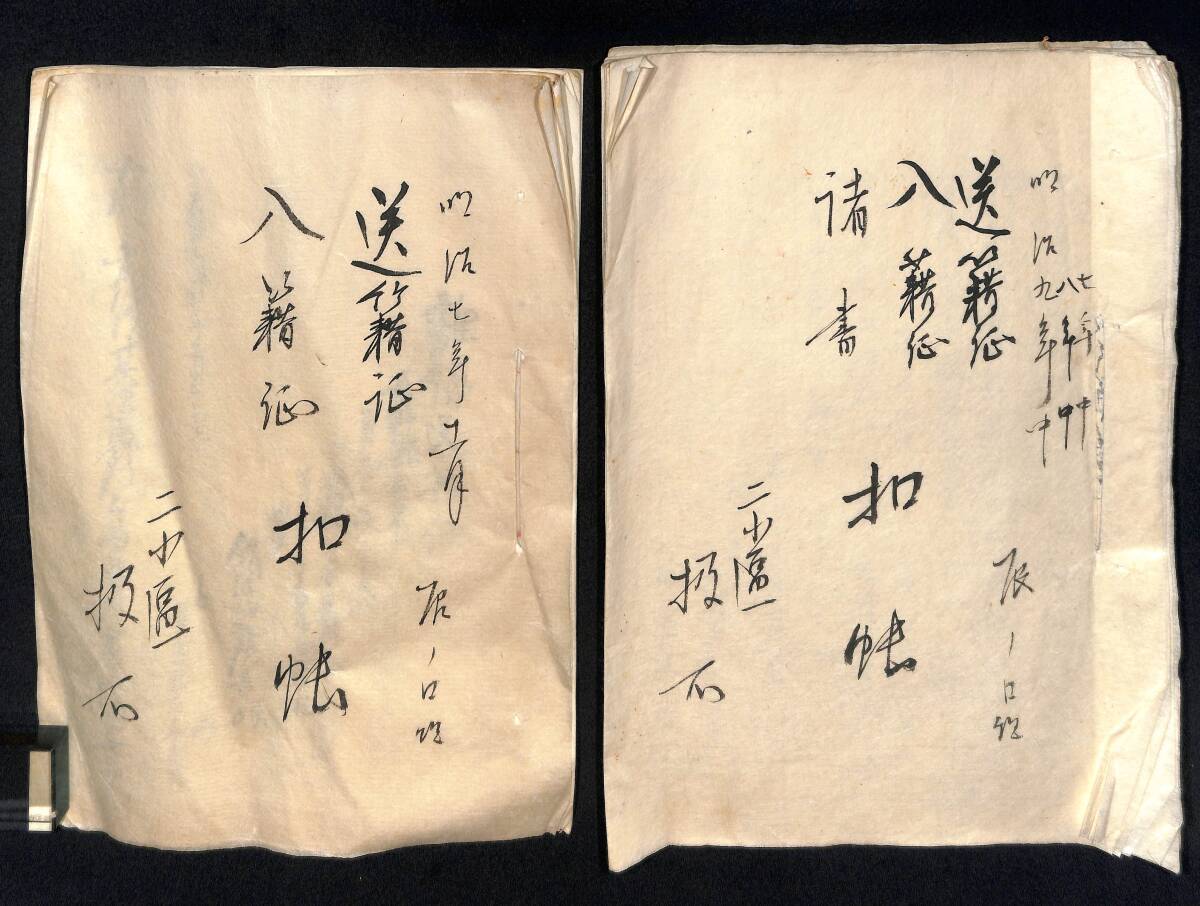 明治七年十一月
辰ノ口組
送籍証
入籍証
扣帳
二小區
扱所
明治七年中
八年中
九年中
辰ノ口組
送籍証
入籍証
諸書
扣帳
二小區
扱所